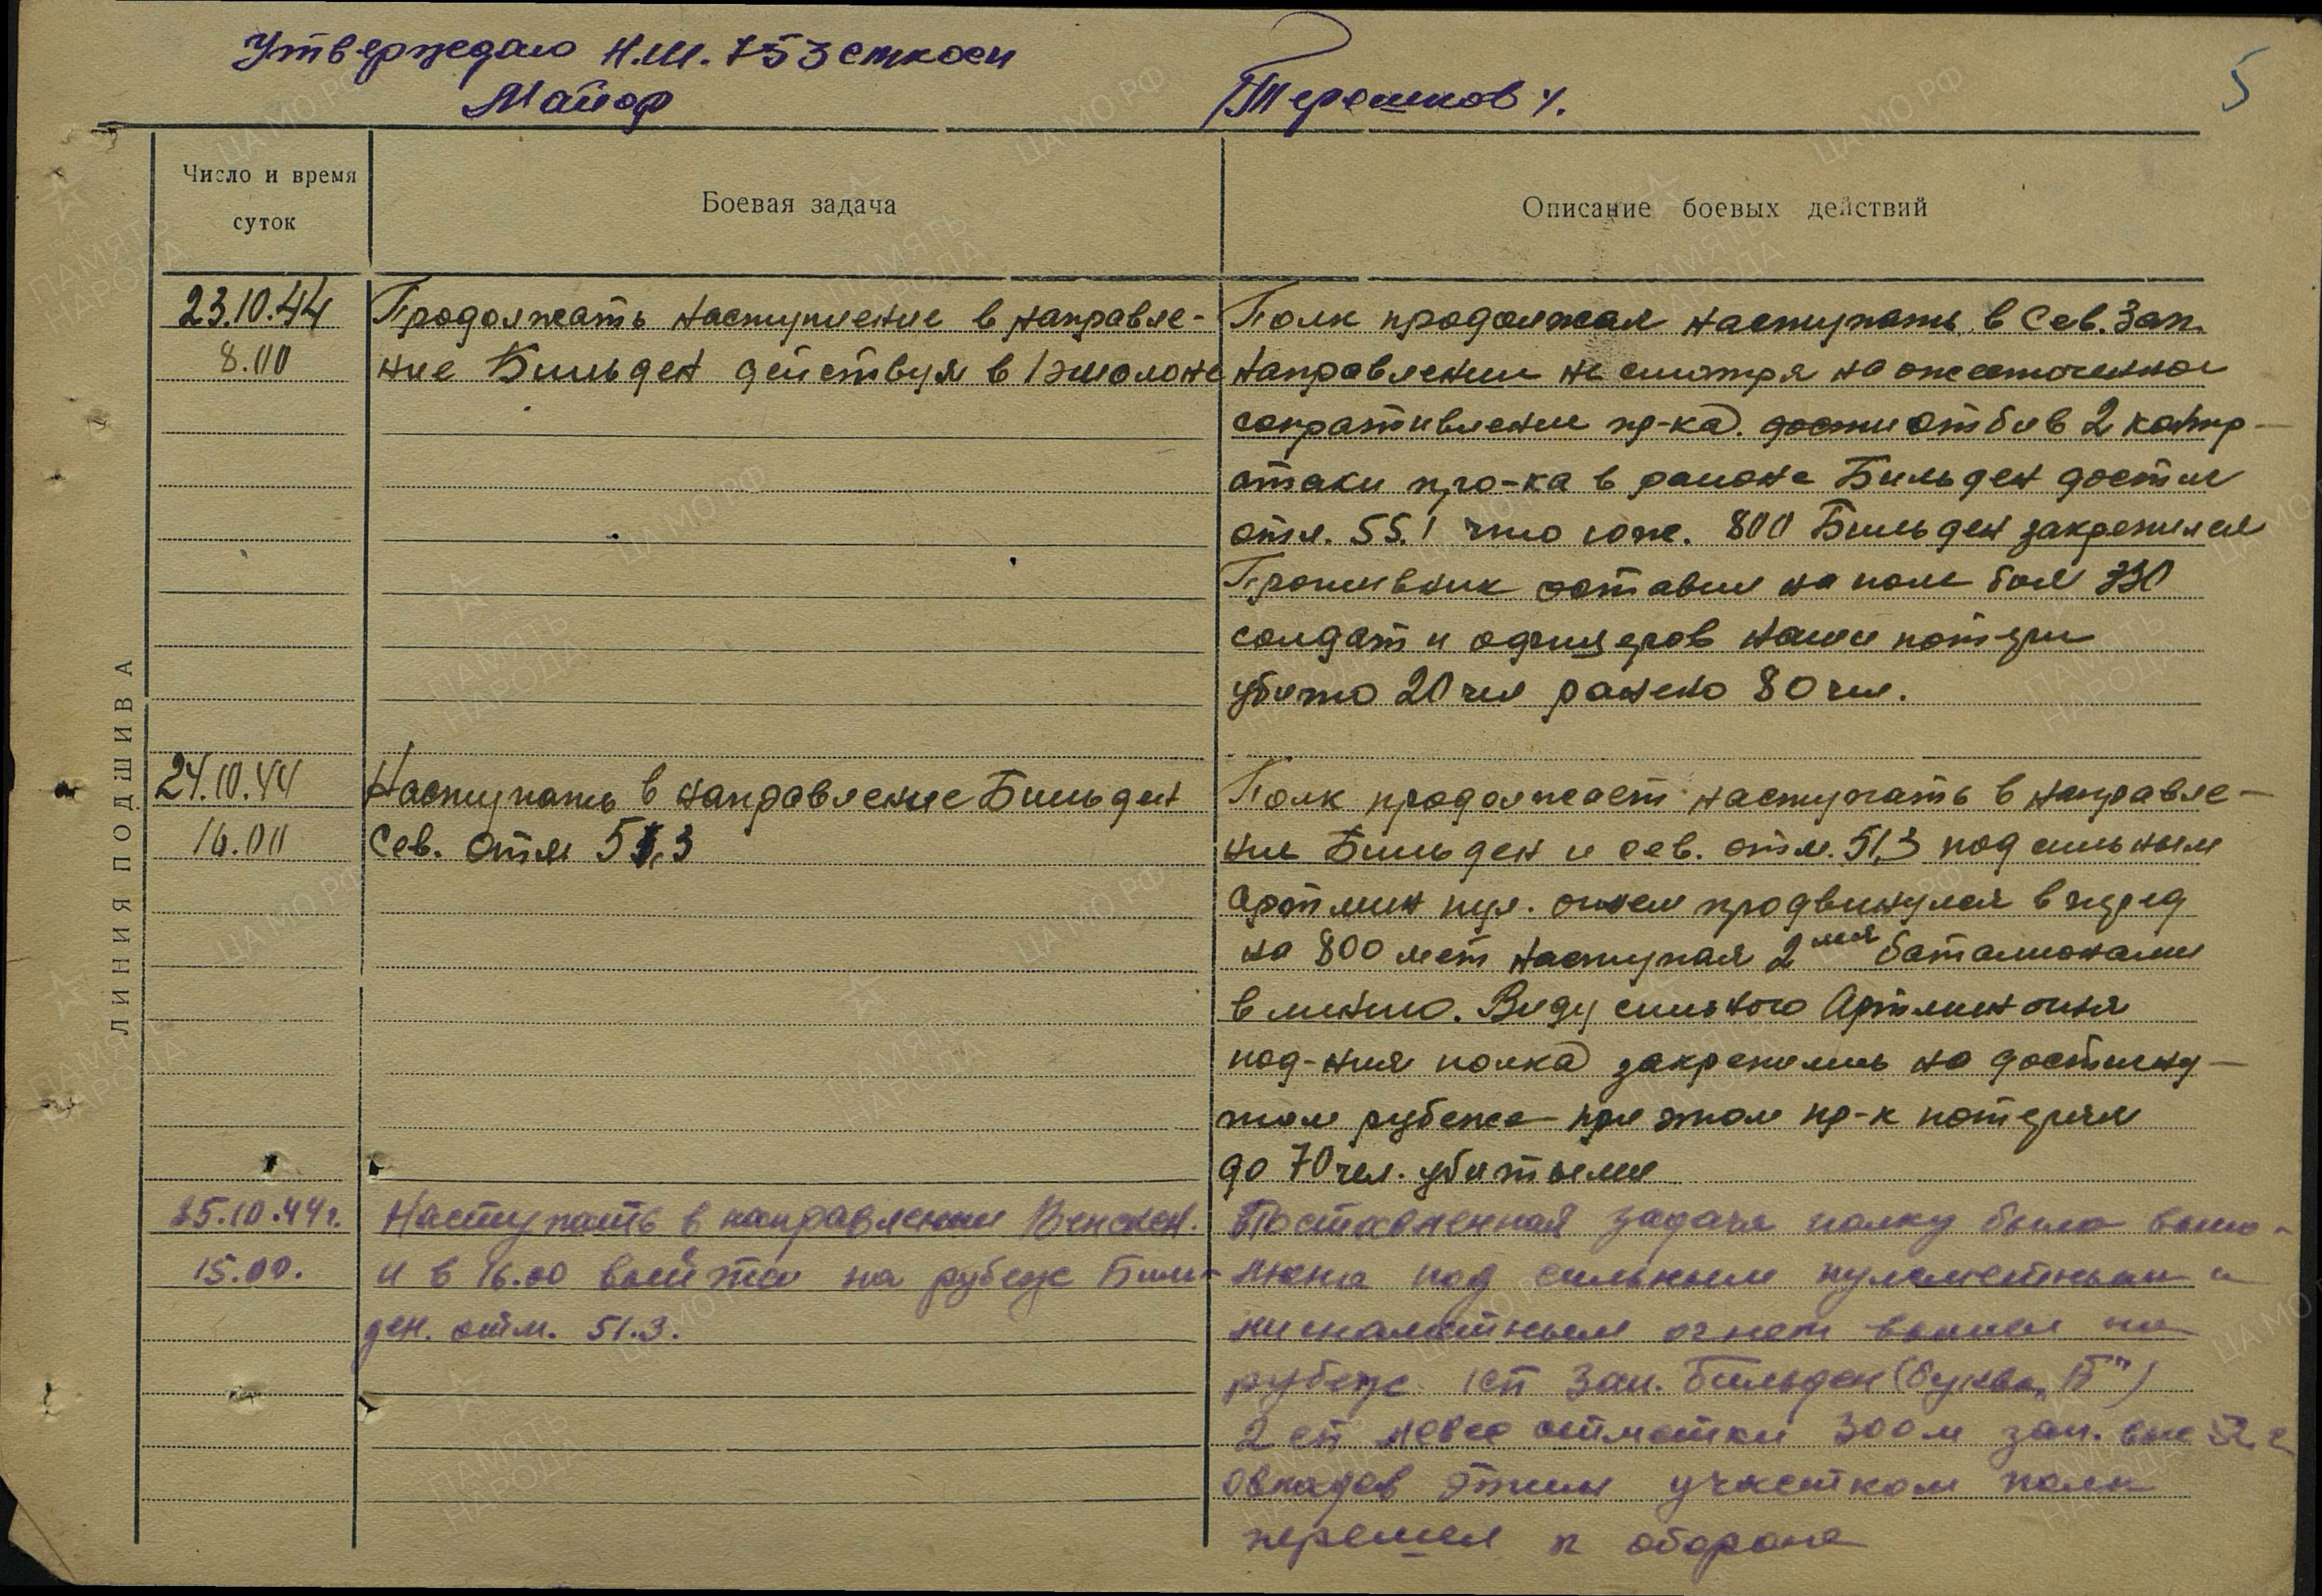 Утверждаю Н.Ш. 753 стк осн
Майор Терешков
5
Число и время суток
Боевая задача
Описание боевых действий
ЛИНИЯ ПОДШИВА
23.10.44
8.00
Продолжать наступление в направле-
ние Бильден действуя в 1 эшолоне
Полк продолжал наступать в Сев. Зап.
направлении не смотря на ожесточенное
сопративление пр-ка. дости отбив 2 контр-
атаки про-ка в районе Бильден достиг
отм. 55.1 что юж. 800 Бильден закрепился
Противник оставил на поле боя
солдат и офицеров наши потери
убито 20 чел ранено 80 чел.
24.10.44
16.00
Наступать в направление Бильден
Сев. отм 51,3
Полк продолжает наступать в направле-
ние Бильден и сев. отм. 51,3 под сильным
Артмин пул. огнем продвинулся вперед
на 800 мет наступая 2мя баталионами
в линию. Виду сильного Артмин огня
под-ния полка закрепились на достигну-
том рубеже при этом пр-к потерял
до 70 чел. убитыми
25.10.44г.
15.00.
Наступать в направлении
и в 16.00 выйти на рубеж Биль-
ден. отм. 51.3.
Поставленная задача полку была выпо-
лнена под сильным пулеметным и
минометным огнем вышел на
рубеж 1сп Зап. Бильден (буква "Б")
2 сп левее отметки 300 м зап.
овладев этим участком полк
перешел к обороне
ЦА МО РФ
ПАМЯТЬ НАРОДА